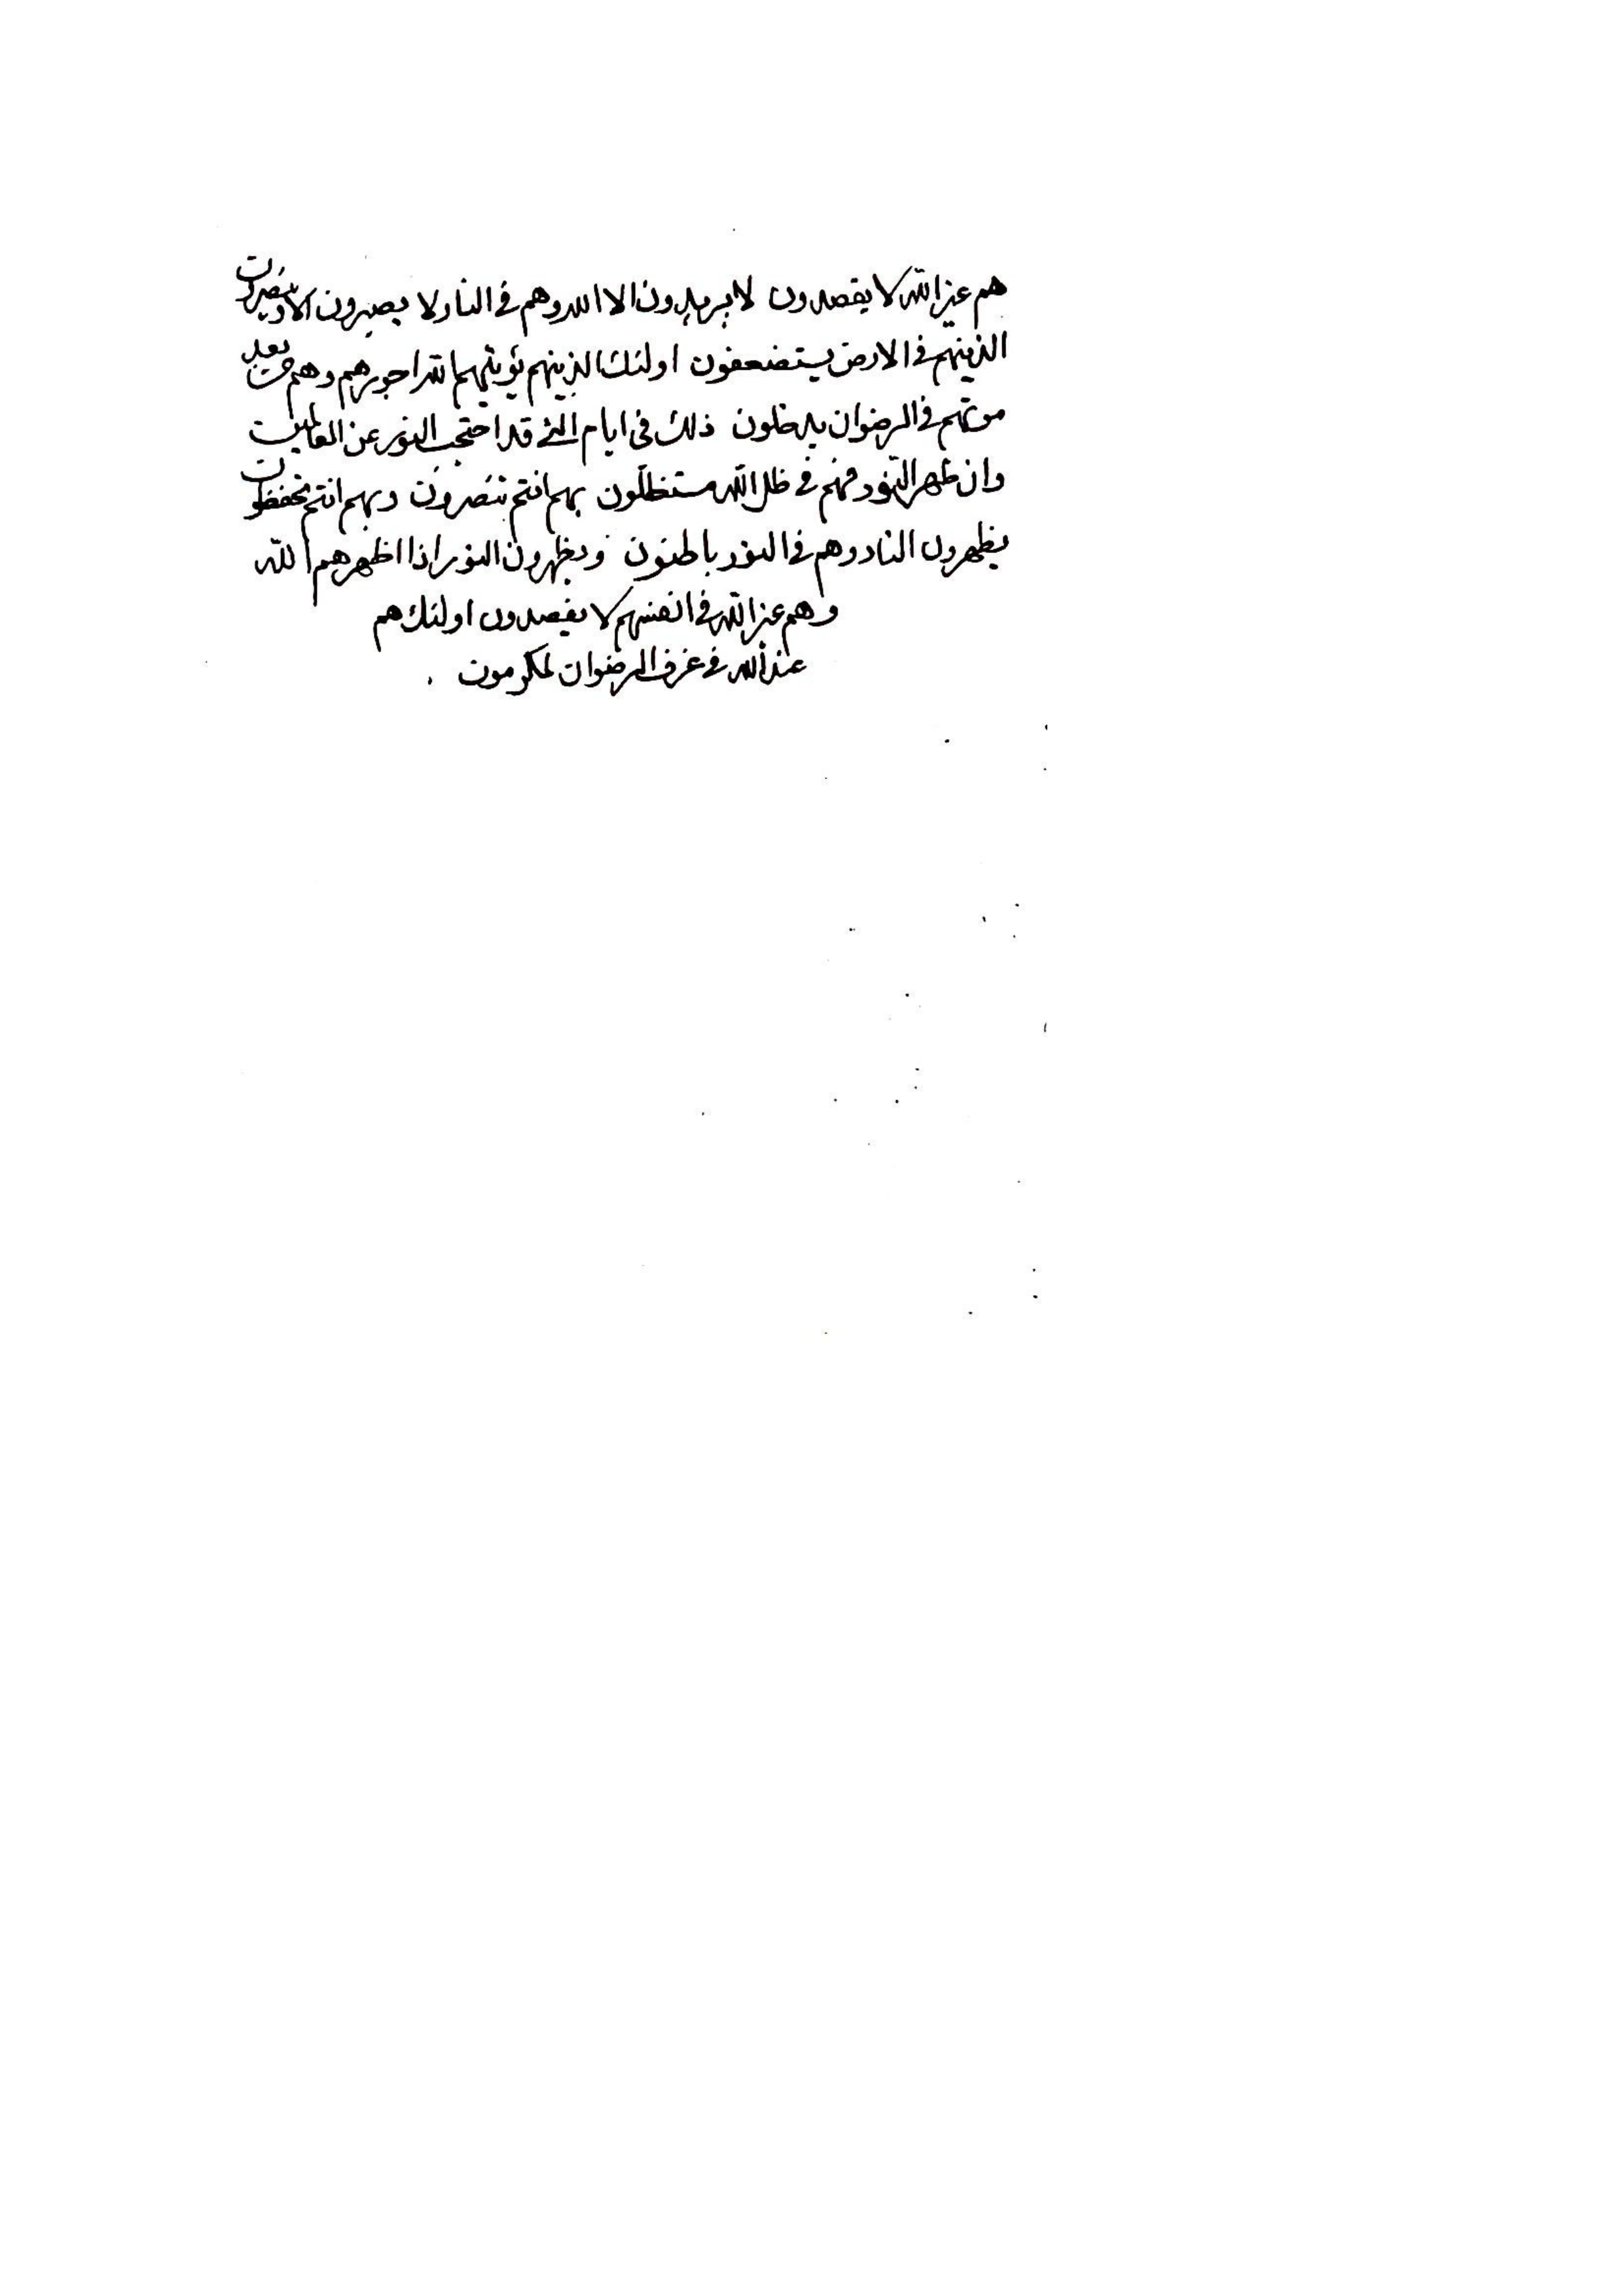 هم غير الله لا يقصدون لا يريدون الا الله وهم في النار ولا يصبرون الا و ينصرون
الذينهم في الارض يستضعفون اولئك الذينهم يؤتيهم الله اجورهم وهم من بعد
موتهم في الرضوان يدخلون ذلك في ايام التي قد احتجب النور عن العالمين
وان ظهر النور فهم في ظل الله مستظلون بهم انتم تنصرون وبهم انتم تحفظون
يظهرون النار وهم في النور باطنون ويظهرون النور اذا اظهرهم الله
وهم غير الله في انفسهم لا يقصدون اولئك هم
عند الله في غرف الرضوان لمكرمون .